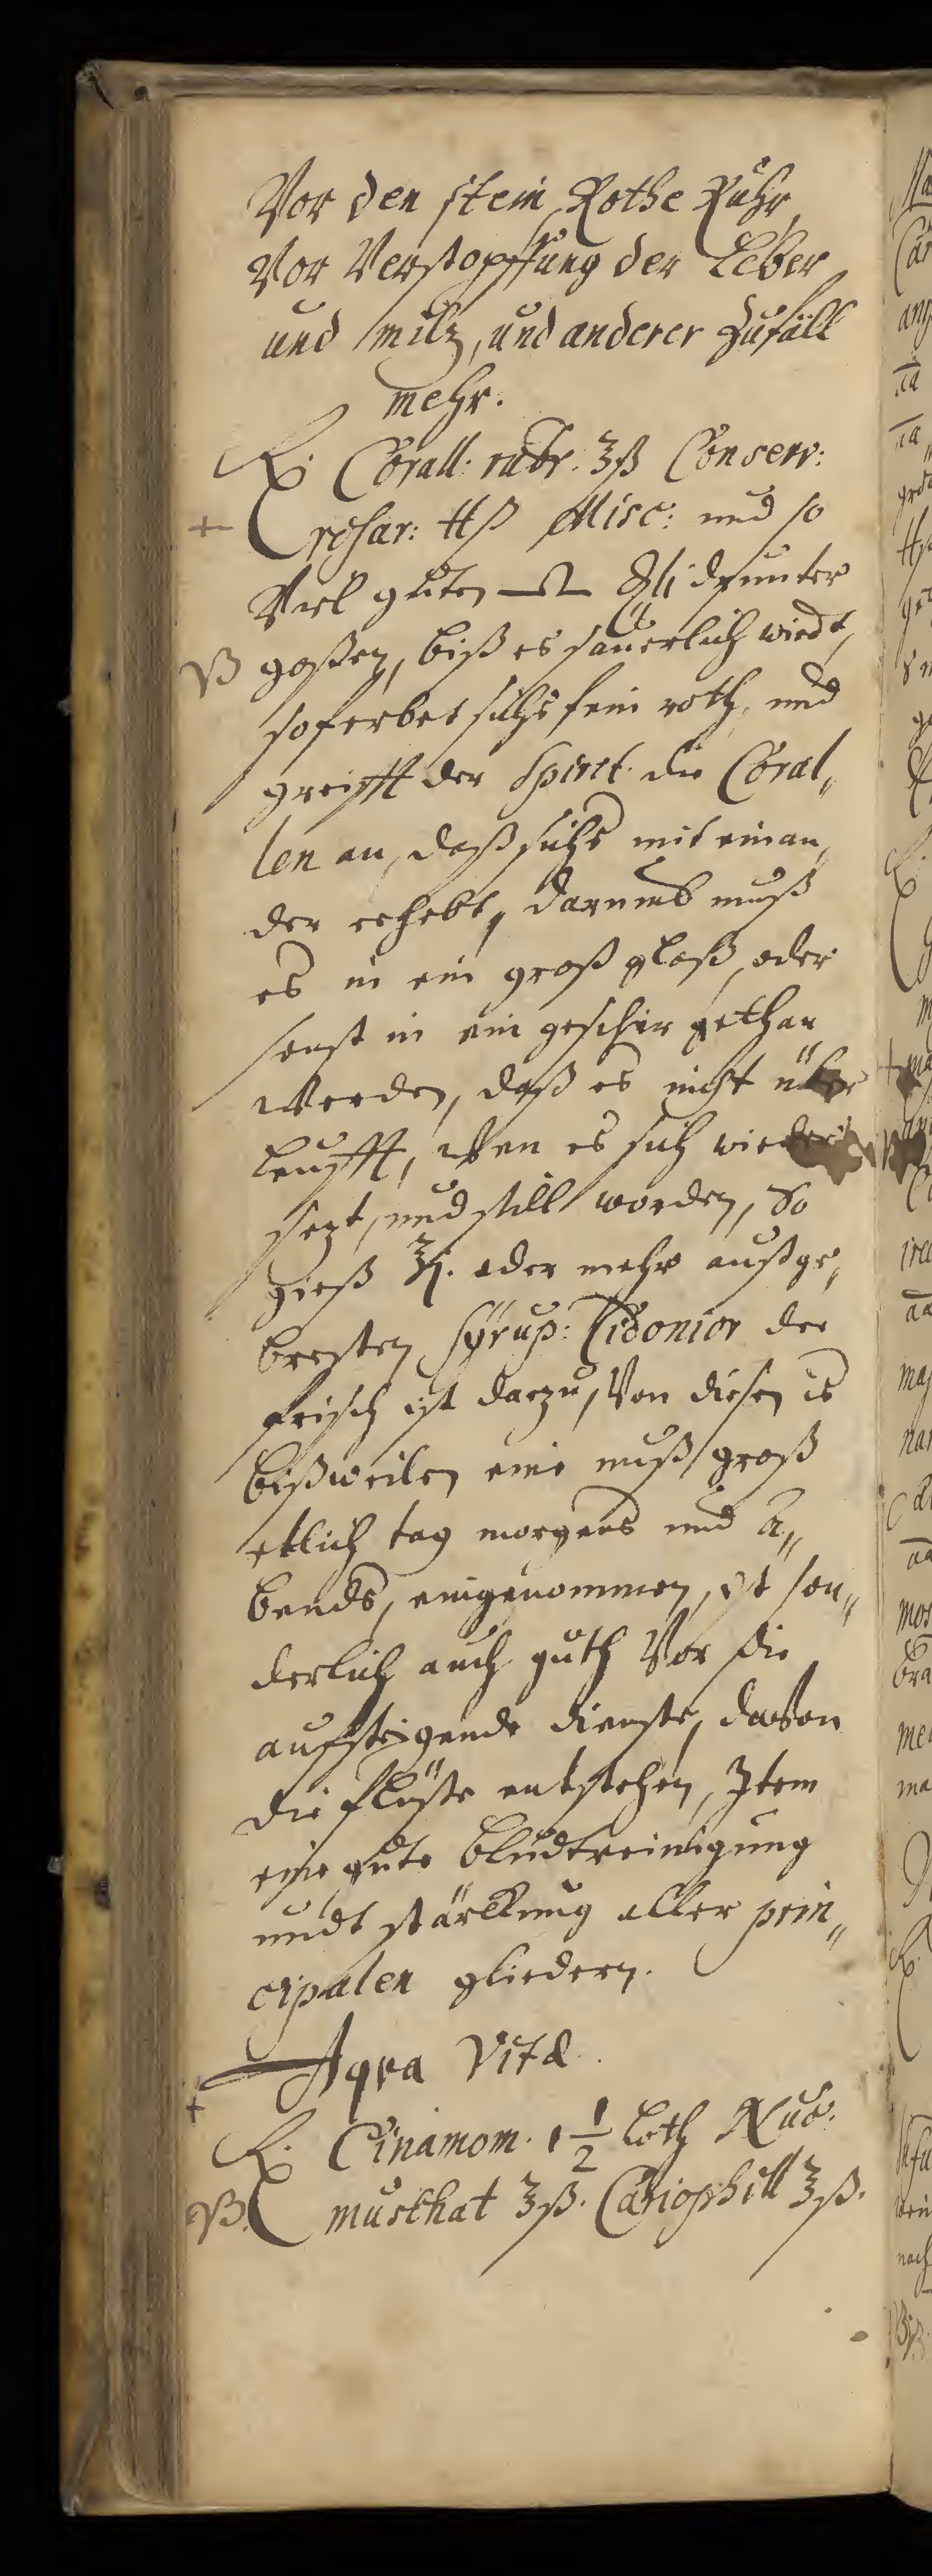 Vor den stein, Rothe Ruhr,
Vor Verstopffung der Leber
und milz, und anderer Zufäll
mehr.
℞. Corall: rubr. ʒß Conserv:
+ rosar: ℔ß Misc: und so
Viel guten drunter
VB goßen, biß es säuerlich wirdt,
so ferbet sichs fein roth, und
greifft der Spirit. die Coral„
len an, daß sichs mit einan„
der erhebt, darumb muß
es in ein groß glaß, oder
sonst in ein geschir gethan
werden, daß es nicht über
leufft, Wen es sich wieder
sezt, und still worden, So
gieß ℥j. oder mehr außge„
bresten Syrup: Cidonior der
frisch ist darzu, Von diesen is
bißweilen eine nuß groß
etlich tag morgens und A„
bends, eingenommen, ist son„
derlich auch guth Vor die
auffsteigende dienste, davon
die flüsse entstehen, Item
eine gute bludtreinigung
undt stärkung aller prin„
cipalen gliedern.
Aqva Vitæ.
+
℞. Cinamom. 1 1/2 loth Nuc.
VB. muskhat ʒß. Cariophill ʒß.